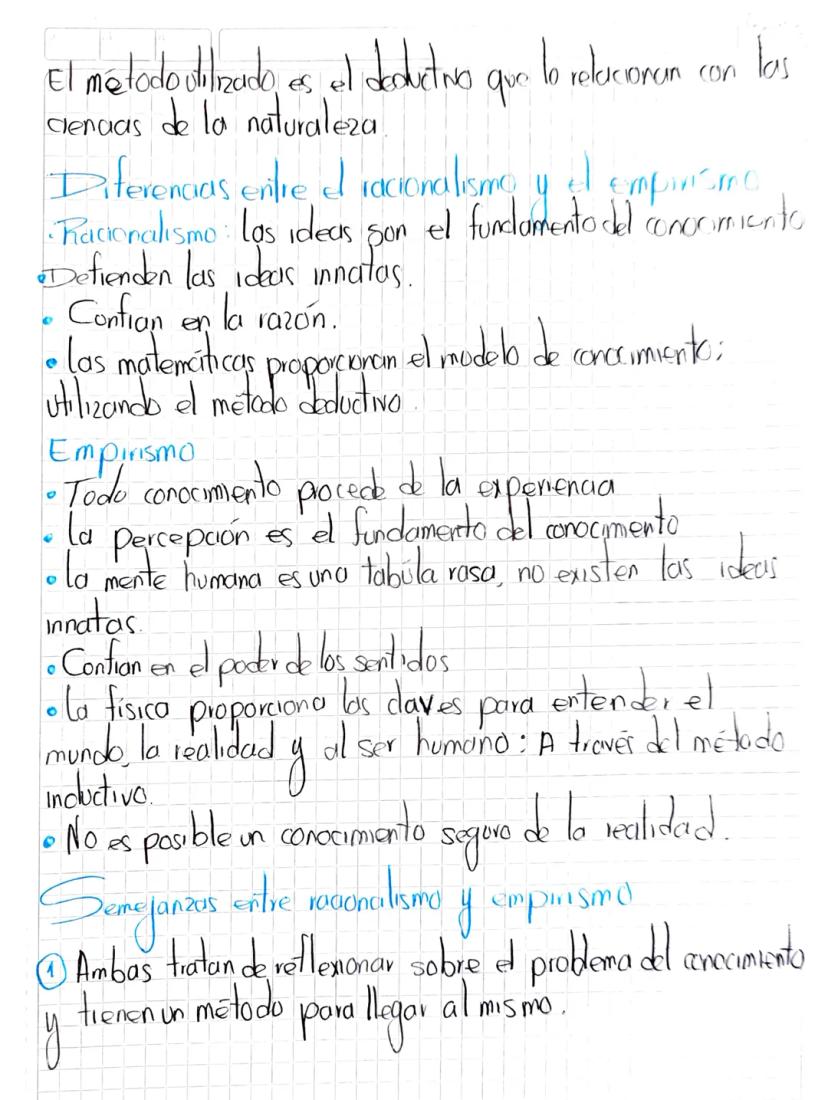 El método utilizado es el deductivo que lo relacionan con las
ciencias de la naturaleza.
Diferencias entre el racionalismo y el empirismo
• Racionalismo: las ideas son el fundamento del conocimiento
• Defienden las ideas innatas.
• Confían en la razón.
• Las matemáticas proporcionan el modelo de conocimiento;
utilizando el método deductivo.
Empirismo
• Todo conocimiento procede de la experiencia
• La percepción es el fundamento del conocimiento
• La mente humana es una tabula rasa, no existen las ideas
innatas.
• Confían en el poder de los sentidos
• La física proporciona las claves para entender el
mundo, la realidad y al ser humano: A través del método
inductivo.
• No es posible un conocimiento seguro de la realidad.
Semejanzas entre racionalismo y empirismo
① Ambas tratan de reflexionar sobre el problema del conocimiento
y tienen un método para llegar al mismo.